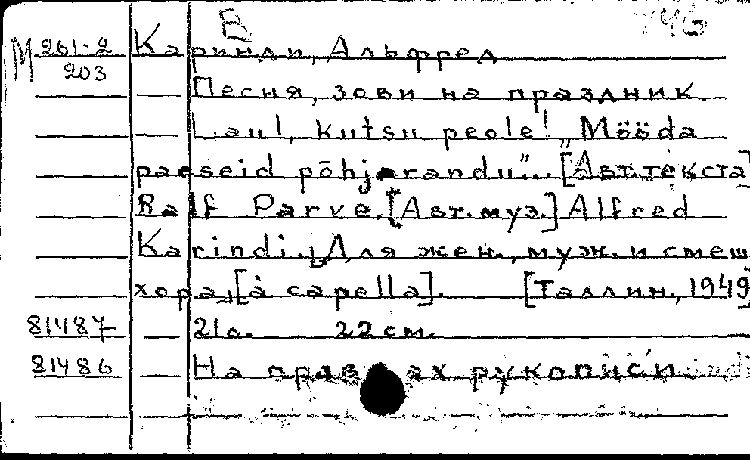 В 746
М 261-2 Каринди, Альфред
203
Песня, зови на праздник.
Laul, kutsu peole! „Mööda
paeseid põhjarandu”... [Авт. текста]
Ralf Parve. [Авт. муз.] Alfred
Karindi. Для жен., муж. и смеш.
хора, [à capella]. [Таллин, 1949]
81487 21с. 22 см.
81486 На правах рукописи